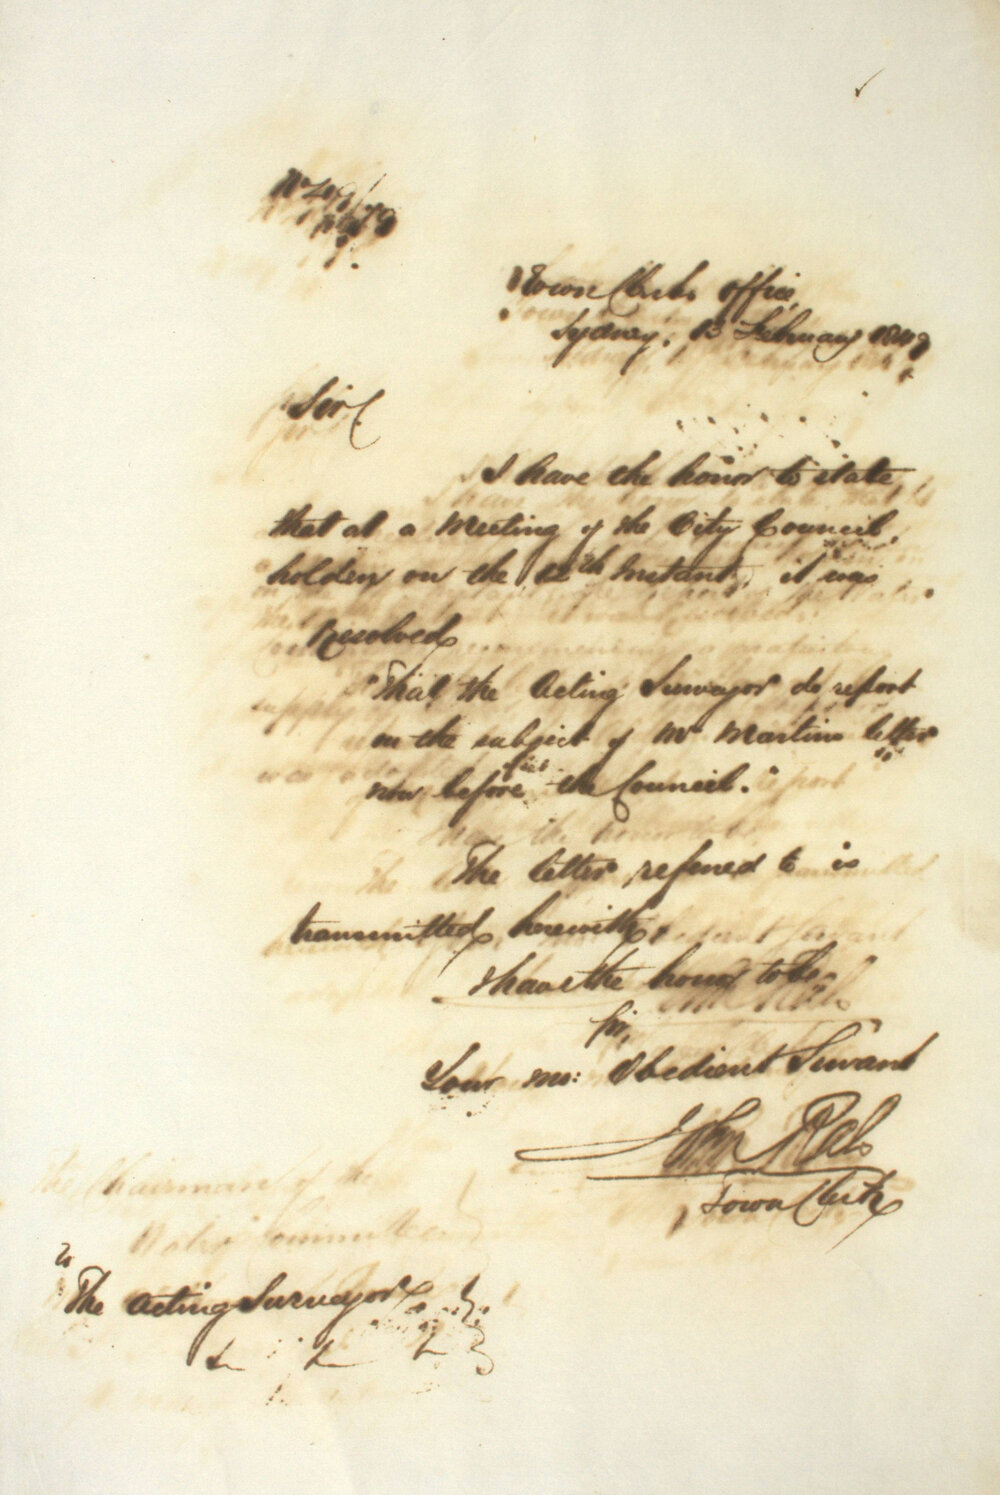 Town Clerks Office,
Sydney, 13 February 1849
Sir
I have the honor to state,
that at a Meeting of the City Council,
holden on the 12th Instant, it was
Resolved
"That the Acting Surveyor do report
on the subject of Mr Martins letter
now before the Council."
The letter referred to is
transmitted herewith.
I have the honor to be
Sir,
Your mo: Obedient Servant
John Rae
Town Clerk
To
The Acting Surveyor